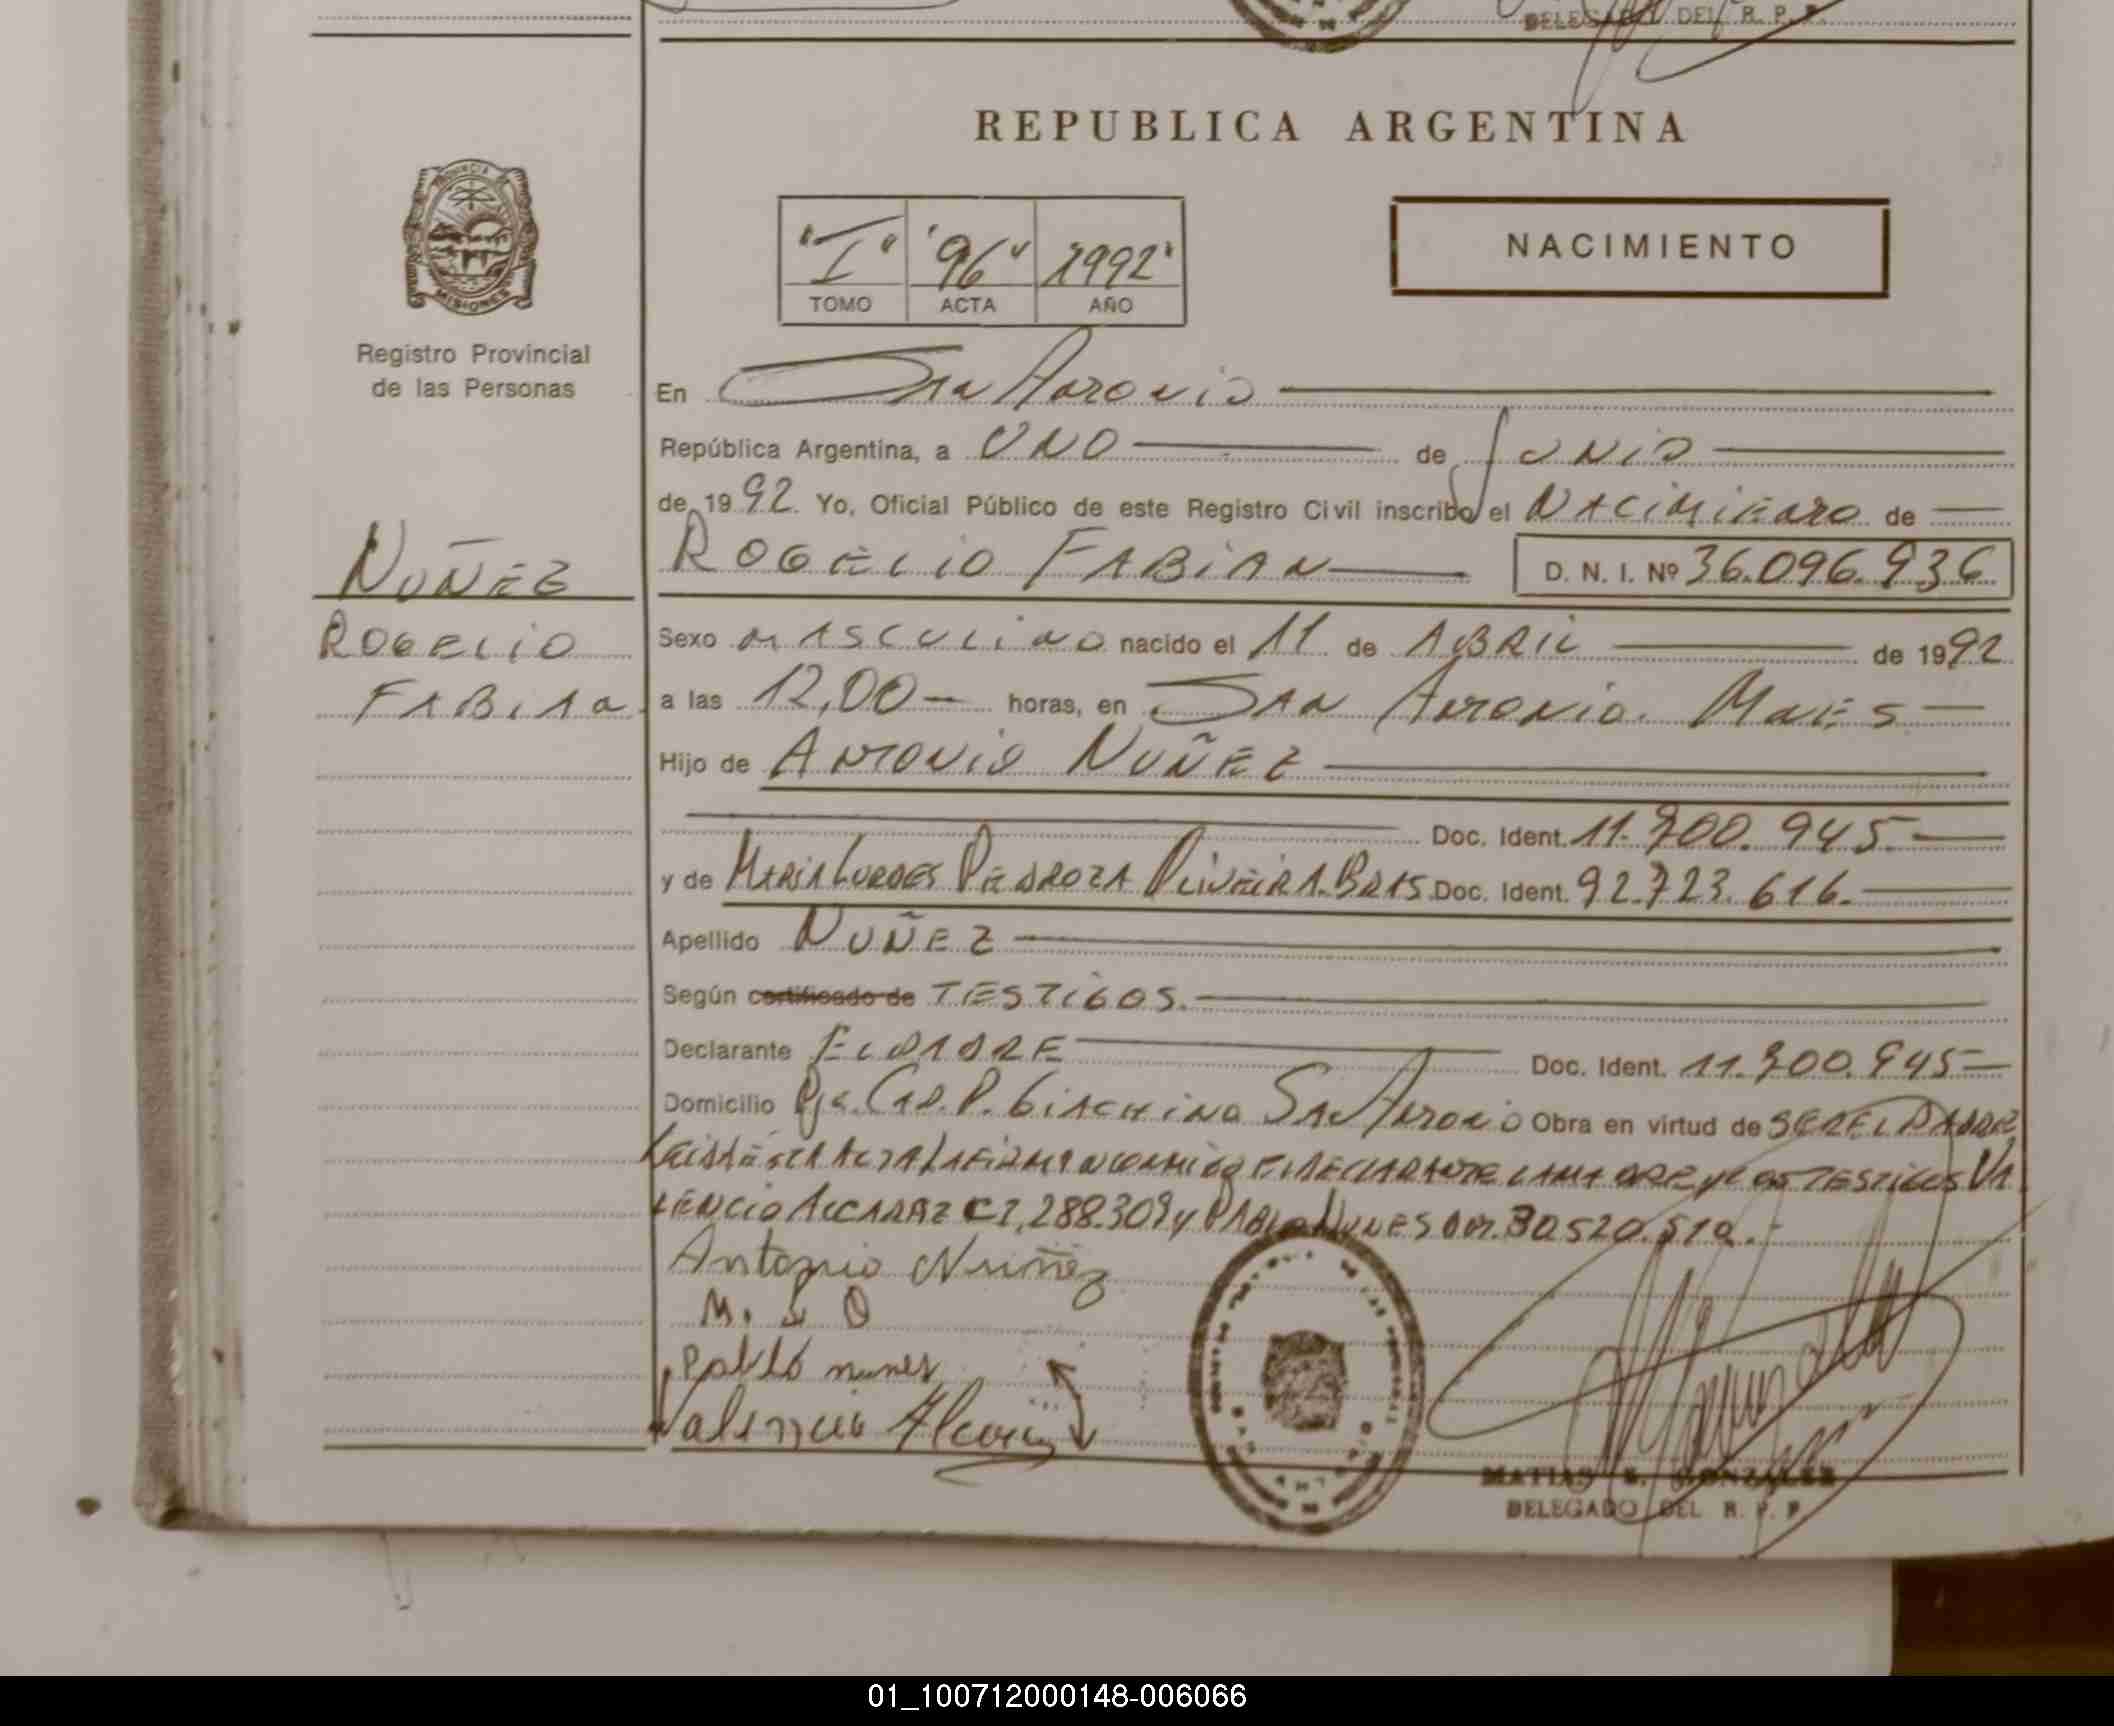 DELEGADO DEL R. P. P.
REPUBLICA ARGENTINA
"I" "96" 1992"
TOMO ACTA AÑO
NACIMIENTO
MISIONES
Registro Provincial
de las Personas
En San Antonio
República Argentina, a UNO de Junio
de 1992. Yo, Oficial Público de este Registro Civil inscribo el NACIMIENTO de
NUÑEZ
ROGELIO FABIAN
D. N. I. Nº 36.096.936
ROGELIO
FABIAN
Sexo MASCULINO nacido el 11 de ABRIL de 1992
a las 12,00 horas, en SAN ANTONIO. MNES
Hijo de ANTONIO NUÑEZ
Doc. Ident. 11.700.945.
y de MARIA LURDES PEDROZA OLIVEIRA. BRAS. Doc. Ident. 92.723.616.
Apellido NUÑEZ
Según certificado de TESTIGOS.
Declarante EL PADRE Doc. Ident. 11.700.945
Domicilio Pje. Cap. P. Giachino San Antonio Obra en virtud de SER EL PADRE
LEIDA ESTA ACTA LA FIRMAN CONMIGO EL DECLARANTE LA MADRE y LOS TESTIGOS VA
LENCIO ALCARAZ CI, 288.309 y PABLO NUNES DNI. 30520.510.-
Antonio Nuñez
M. L O
Pablo nunes
Valencio
MATIAS R. GONZALEZ
DELEGADO DEL R. P. P.
01_100712000148-006066